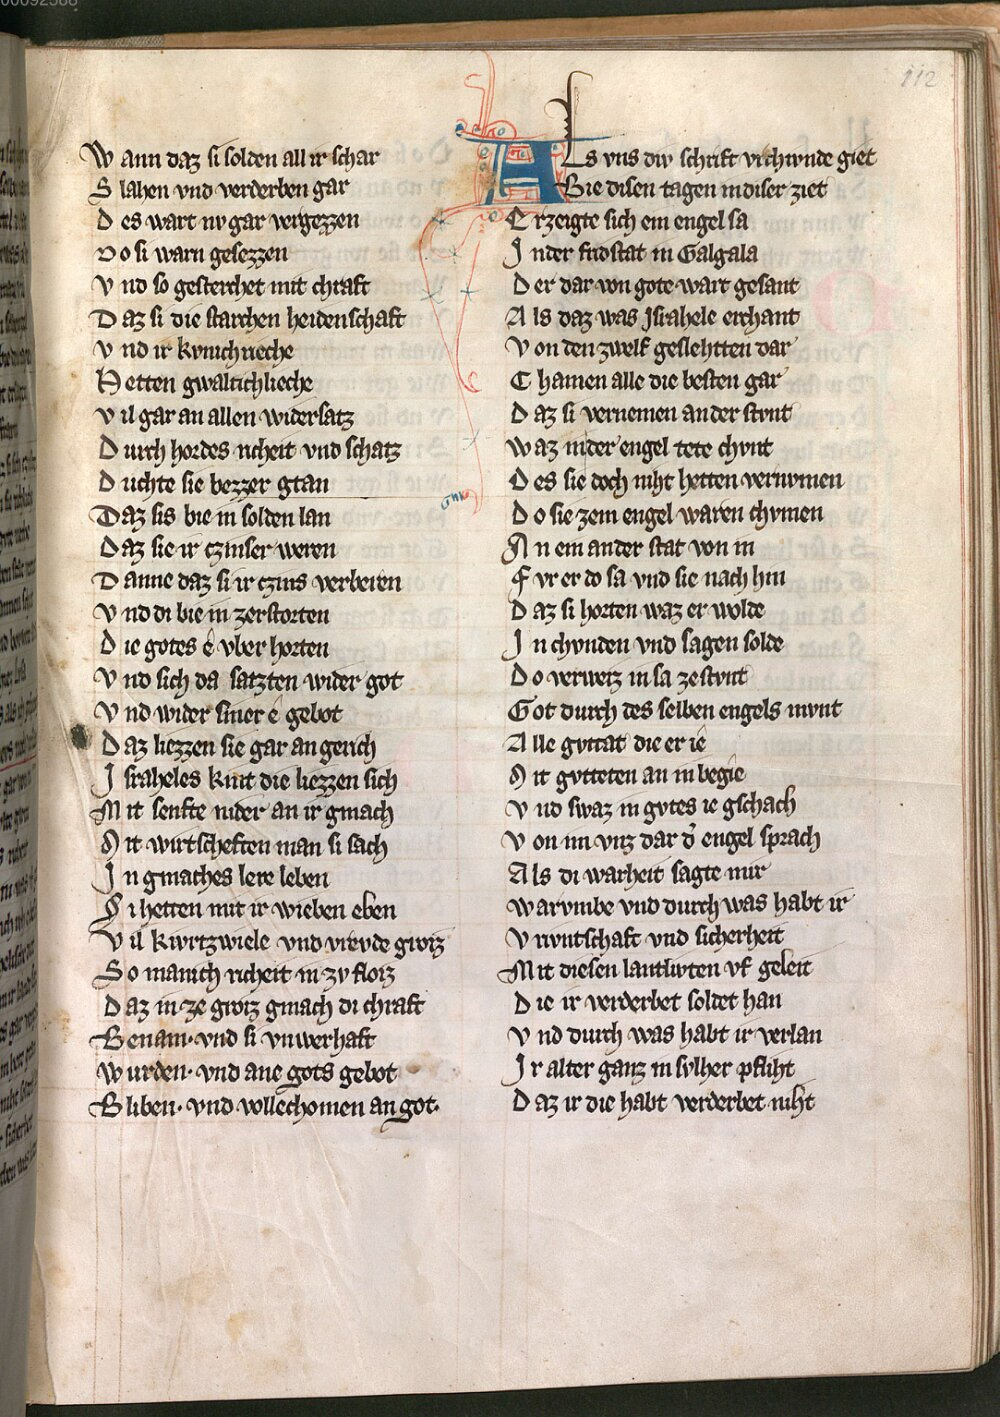 00092588
112
W ann daz si solden all ir schar
S lahen vnd verderben gar
D es wart nv gar vergezzen
D o si warn gesezzen
V nd so gesterchet mit chraft
D az si die starchen heidenschaft
V nd ir kvnichrieche
H etten gwaltichlieche
V il gar an allen widersatz
D urch hordes richeit vnd schatz
D uchte sie bezzer gtan
D az sis bie in solden lan
D az sie ir czinser weren
D anne daz si ir czins verberen
V nd di bie in zerstorten
D ie gotes ê vber horten
V nd sich da satzten wider got
V nd wider siner e gebot
D az liezzen sie gar an gerich
J sraheles kint die liezzen sich
M it senfte nider an ir gmach
M it wirtscheften man si sach
J n gmaches lere leben
S i hetten mit ir wieben eben
V il kvrtzwiele vnd vrevde groz
S o manich richeit in zv floz
D az in ze groz gmach di chraft
B enam· vnd si vnwerhaft
W urden· vnd ane gots gebot
B liben· vnd vollechomen an got·
A Ls vns div schrift vrchvnde giet
Bie disen tagen in diser ziet
E rzeigte sich ein engel sa
J n der frostat in Galgala
D er dar von gote wart gesant
A ls daz was Jsrahele erchant
V on den zwelf geslehtten dar
C hamen alle die besten gar
D az si vernemen an der stvnt
W az in der engel tete chvnt
D es sie doch niht hetten vernvmen
D o sie zem engel waren chvmen
A n ein ander stat von in
F vr er do sa vnd sie nach hin
D az si horten waz er wolde
J n chvnden vnd sagen solde
D o verweiz in sa ze stvnt
G ot durch des selben engels mvnt
A lle gvttat die er ie
M it gvtteten an in begie
V nd swaz in gvtes ie gschach
V on im vnz dar d' engel sprach
A ls di warheit sagte mir
W arvmbe vnd durch was habt ir
V rivntschaft vnd sicherheit
M it diesen lantlivten vf geleit
D ie ir verderbet soldet han
V nd durch was habt ir verlan
J r alter ganz in sylher pfliht
D az ir die habt verderbet niht